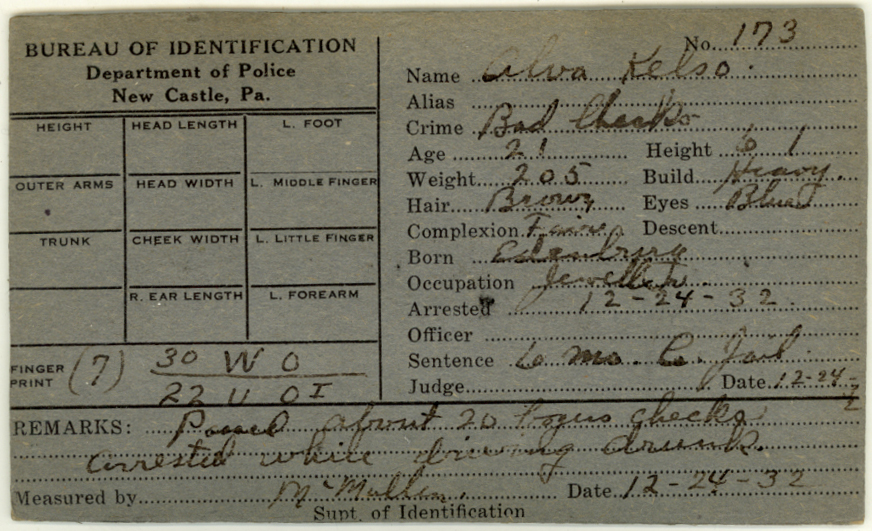 BUREAU OF IDENTIFICATION
Department of Police
New Castle, Pa.
HEIGHT HEAD LENGTH L. FOOT
OUTER ARMS HEAD WIDTH L. MIDDLE FINGER
TRUNK CHEEK WIDTH L. LITTLE FINGER
R. EAR LENGTH L. FOREARM
FINGER PRINT (7) 30 W O
22 U OI
No. 173
Name Alva Kelso.
Alias
Crime Bad Checks
Age 21 Height 6 1
Weight 205 Build Heavy.
Hair Brown Eyes Blue
Complexion Fair Descent
Born Edenburg
Occupation Jeweller.
Arrested 12-24-32.
Officer
Sentence 6 mo. Co. Jail.
Judge Date 12-24-
REMARKS: Passed about 20 bogus checks
arrested while driving drunk.
Measured by McMullen. Date 12-24-32
Supt. of Identification